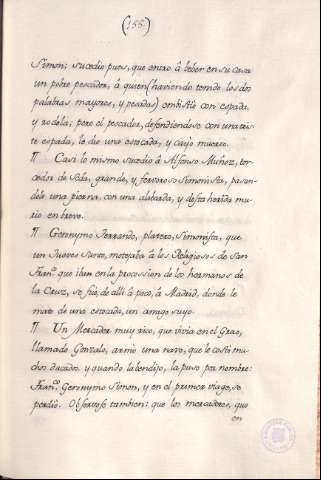 (155)
Simon; sucedio pues, que entro â beber en su casa
un pobre pescador, â quien (haviendo tenido los dos
palabras mayores, y pesadas) embistio con espada
y rodela; pero el pescador, defendiendose con una tris-
te espada, le dio una estocada, y cayò muerto.
¶ Casi lo mismo sucedio â Alfonso Muñoz, tor-
cedor de Seda, grande, y fervoroso Simonista, pasan-
dole una pierna, con una alabarda, y desta herida mu-
rio en breve.
¶ Geronymo Ferrando, platero, Simonista, que
un Jueves Santo, motejaba â los Religiosos de San
Franco. que ivan en la procession de los hermanos de
la Cruz, se fuè, de alli â poco, â Madrid, donde le
mato de una estocada, un amigo suyo.
¶ Un Mercader muy rico, que vivia en el Grao,
llamado Gonzalo, armò una nave, que le costò mu-
chos ducados, y quando la bendijo, la puso por nombre:
Franco. Geronymo Simon, y en el primer viage, se
perdio. Observose tambien: que los mercaderes, que
en